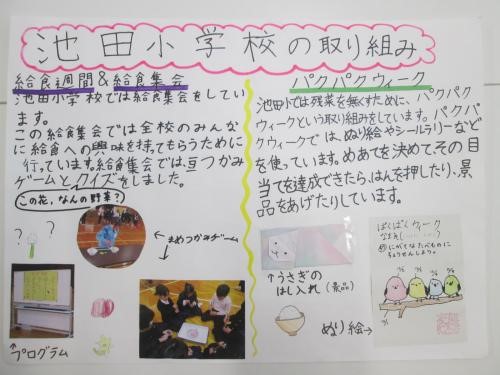 池田小学校の取り組み
給食週間&給食集会
池田小学校では給食集会をしてい
ます。
この給食集会では全校のみんな
に給食への興味を持ってもらうために
行っています。給食集会では、豆つかみ
ゲームとクイズをしました。
この花、なんの野菜?
? ?
←まめつかみゲーム
↑プログラム
パクパクウィーク
池田小では残菜を無くすために、パクパク
ウィークという取り組みをしています。パクパ
クウィークでは、ぬり絵やシールラリーなど
を使っています。めあてを決めてその目
当てを達成できたら、はんを押したり、景
品をあげたりしています。
↑うさぎの
はし入れ(景品)
ぬり絵→
ぱくぱくウィーク
にがてなたべものに
ちょうせんしよう。